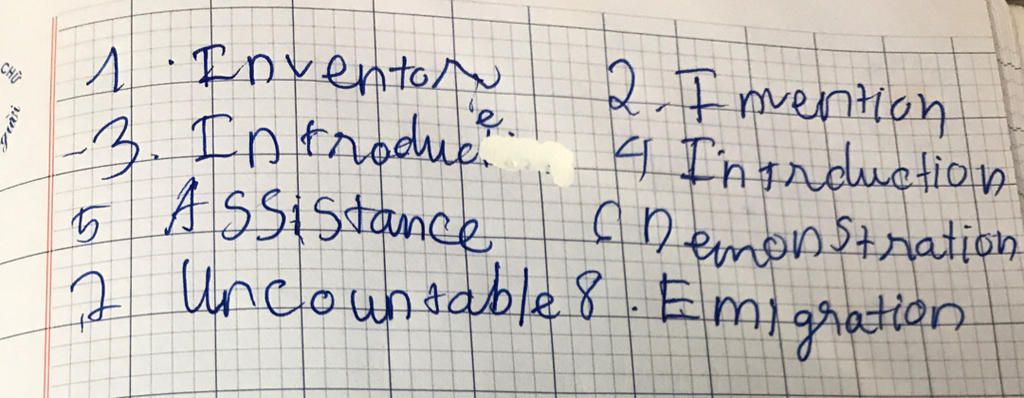 CHỮ
1. Inventor 2. Invention
3. Introduce. 4 Introduction
5 Assistance 6 Demonstration
7 Uncountable 8. Emigration